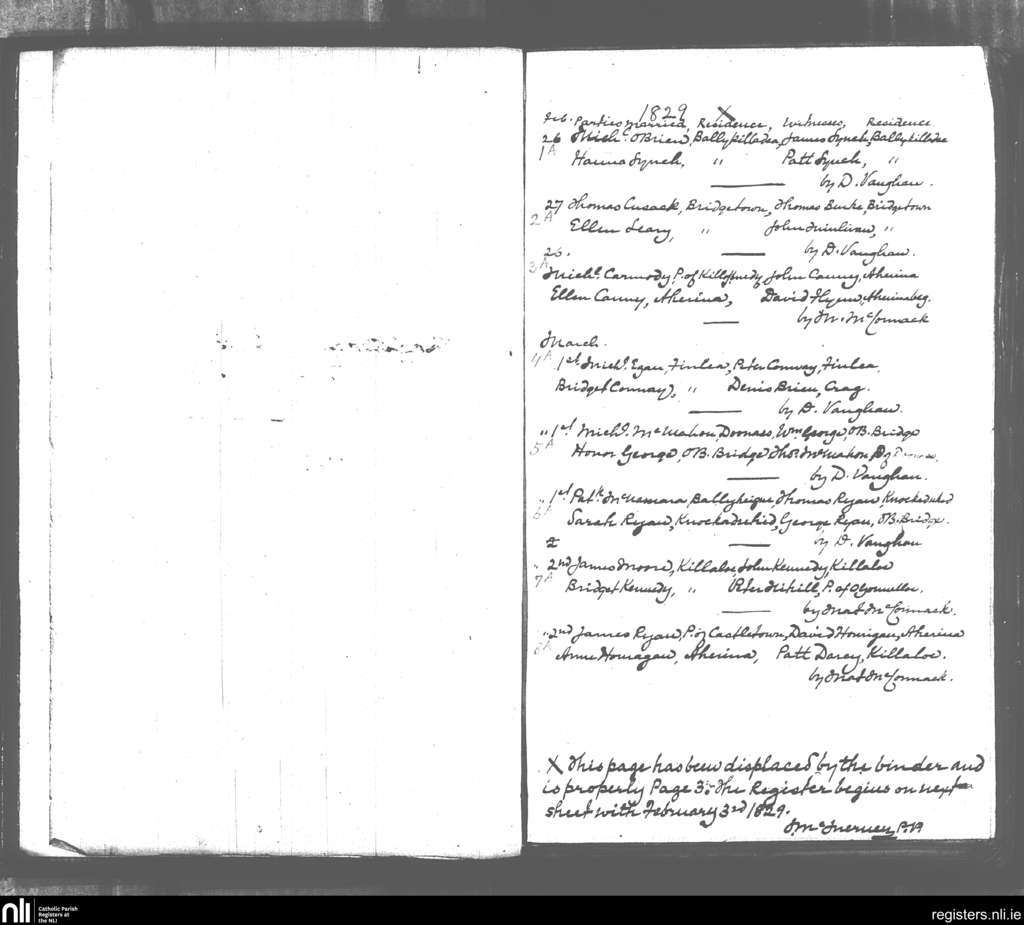 1829 X
Feb. Parties married, Residence, Witnesses, Residence
26 Mich. O'Brien, Ballykilldea, James Lynch, Ballykilldea
1A Hanna Lynch, " Patt Lynch, "
by D. Vaughan.
27 Thomas Cusack, Bridgetown, Thomas Burke, Bridgetown
2A Ellen Leary, " John Quinlivan, "
26. by D. Vaughan.
3A Michl. Carmody, P. of Killokennedy John Canny, Aherina
Ellen Canny, Aherina, David Flynn, Aherinabeg.
by M. McCormack
March.
4A 1st Michl. Egan, Finlea, Peter Conway, Finlea
Bridget Conway, " Denis Brien, Crag.
by D. Vaughan.
" 1st Michl. McMahon, Doonass, Wm George, O'B. Bridge
5A Honor George, O'B. Bridge Thos. McMahon
by D. Vaughan.
" 1st Patk. McNamara, Ballykeigue, Thomas Ryan, Knockaduhid
6A Sarah Ryan, Knockaduhid, George Ryan, O'B. Bridge.
2 by D. Vaughan
" 2nd James Moore, Killaloe, John Kennedy, Killaloe
7A Bridget Kennedy, " Peter Hihill, P. of Ogonnelloe.
by Mat McCormack.
" 2nd James Ryan, P. of Castletown, David Hourigan, Aherina
8A Anne Houragan, Aherina, Patt Darcy, Killaloe.
by Mat McCormack.
X This page has been displaced by the binder and
is properly Page 3. The Register begins on next
sheet with February 3rd 1829.
J McInerney P.P.
nli Catholic Parish
Registers at
the NLI
registers.nli.ie